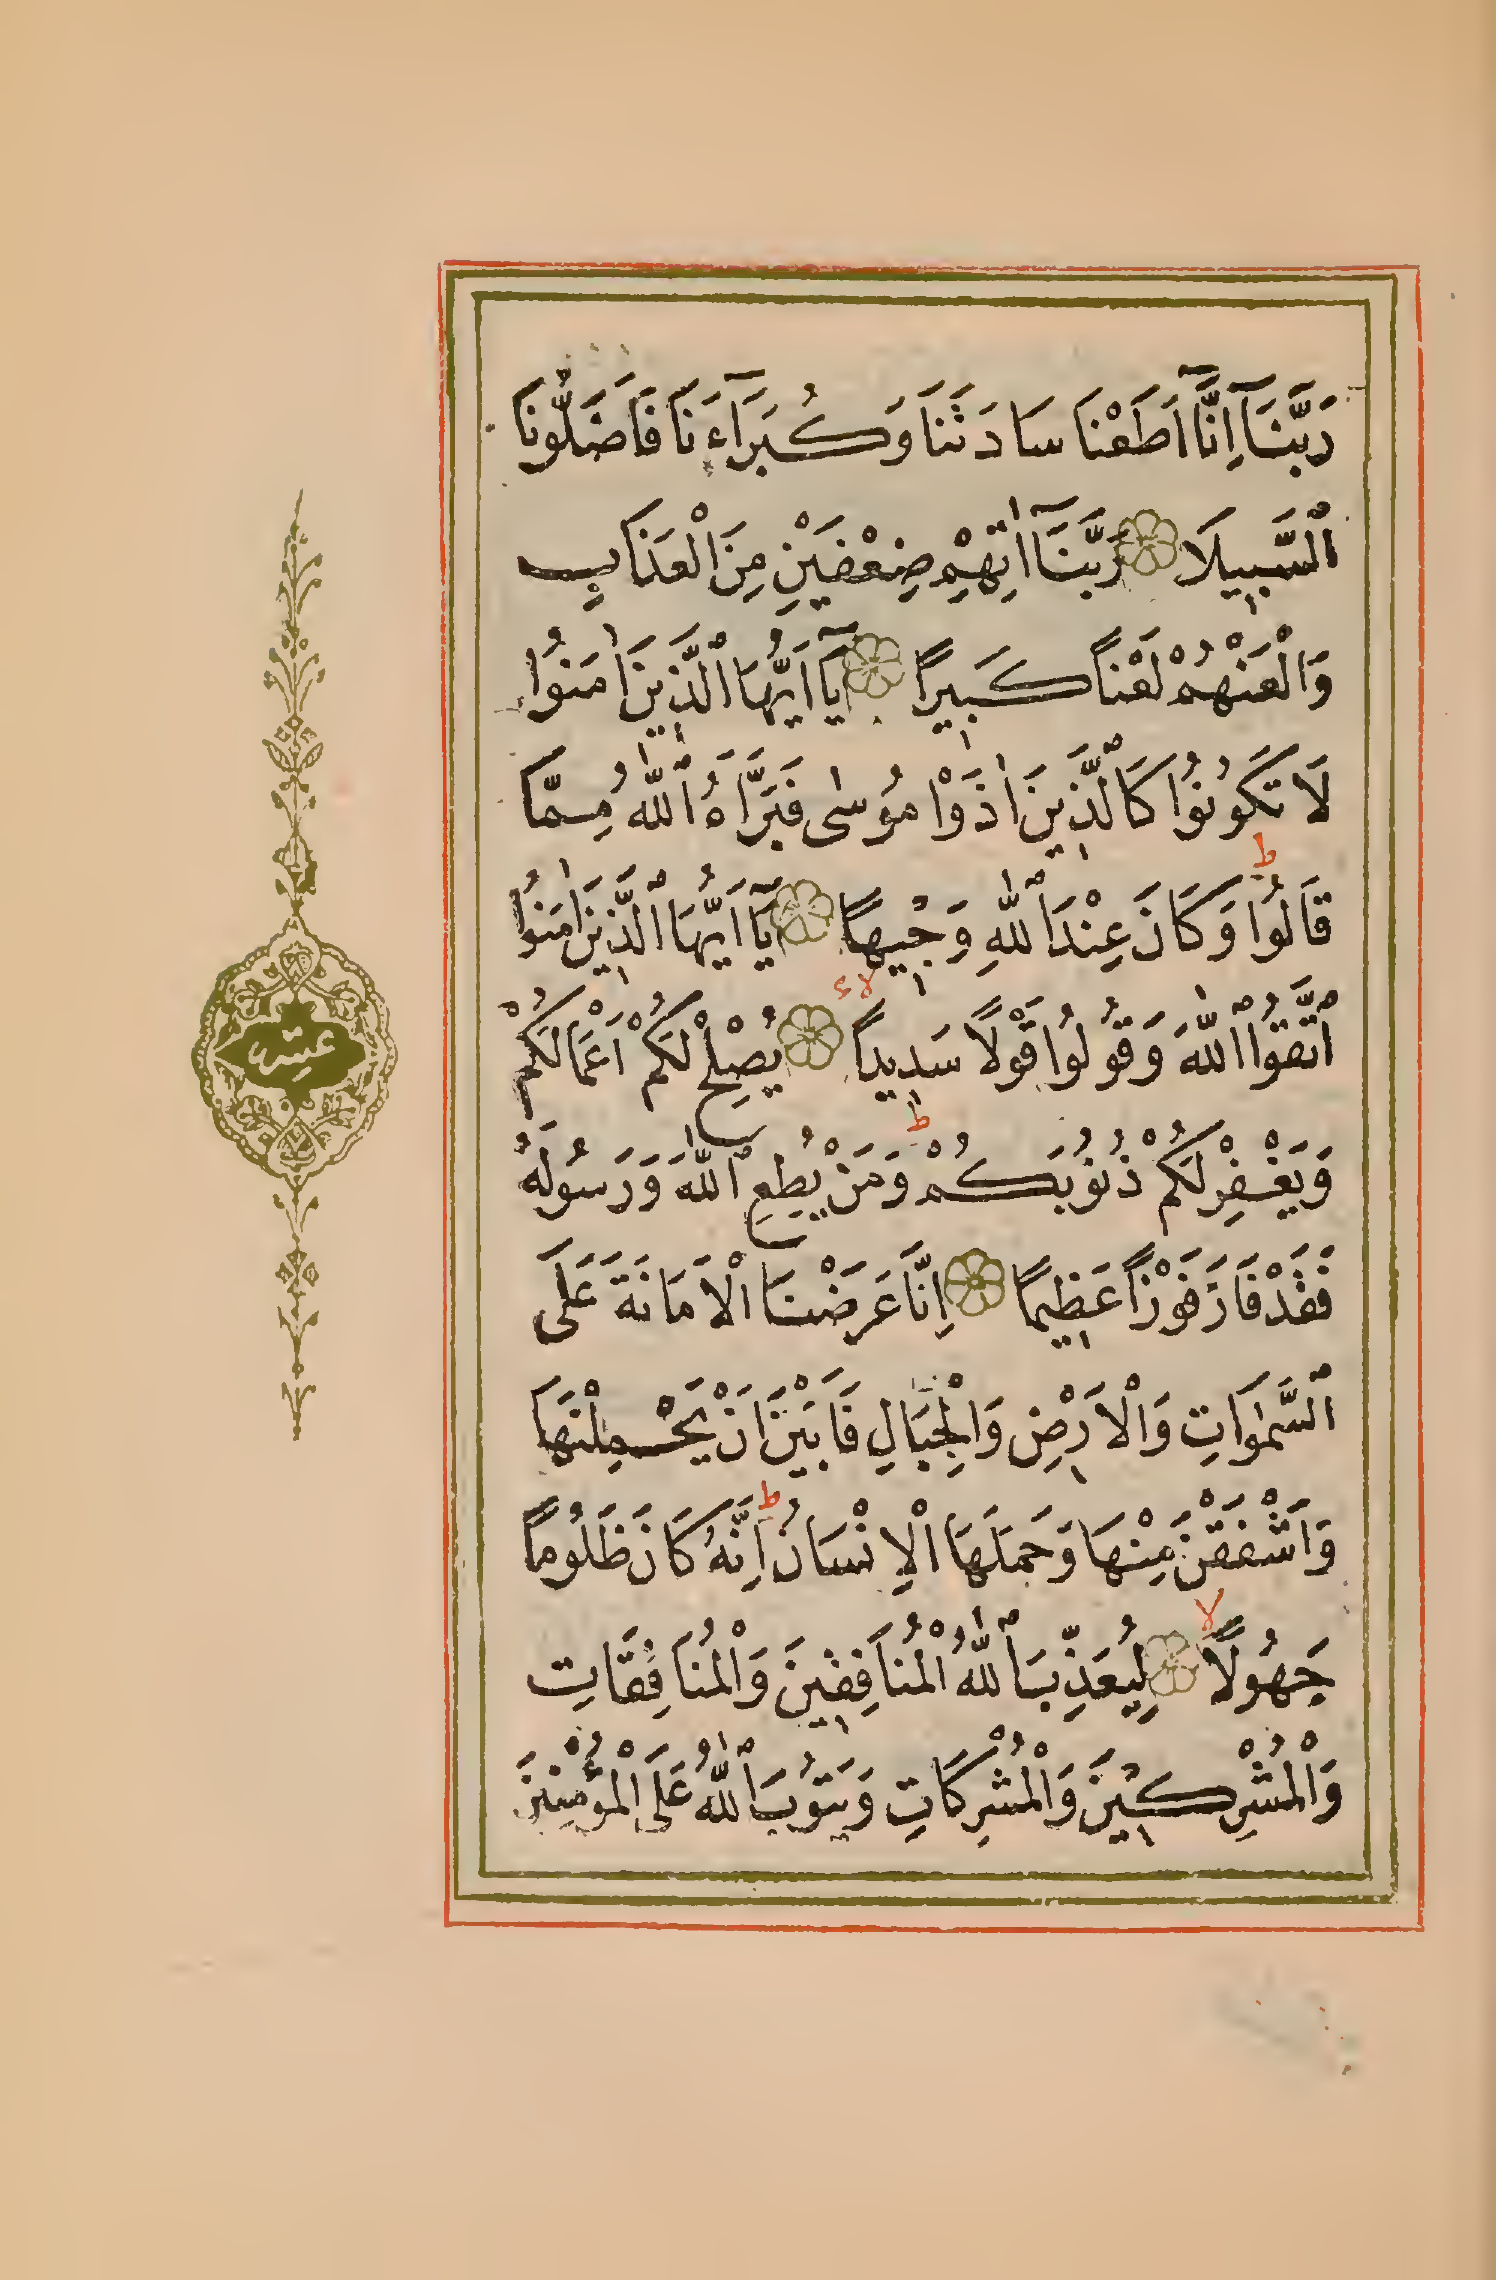 رَبَّنَآ اِنَّآ اَطَعْنَا سَادَتَنَا وَكُبَرَآءَنَا فَاَضَلُّونَا
ٱلسَّبِيلَا رَبَّنَآ اٰتِهِمْ ضِعْفَيْنِ مِنَ الْعَذَابِ
وَالْعَنْهُمْ لَعْنًا كَبِيرًا يَآ اَيُّهَا ٱلَّذِينَ اٰمَنُوا
لَا تَكُونُوا كَٱلَّذِينَ اٰذَوْا مُوسٰى فَبَرَّاَهُ ٱللّٰهُ مِمَّا
قَالُوا ط وَكَانَ عِنْدَ ٱللّٰهِ وَجِيهًا يَآ اَيُّهَا ٱلَّذِينَ اٰمَنُوا
ٱتَّقُوا ٱللّٰهَ وَقُولُوا قَوْلًا سَدِيدًا لا يُصْلِحْ لَكُمْ اَعْمَالَكُمْ
وَيَغْفِرْ لَكُمْ ذُنُوبَكُمْ ط وَمَنْ يُطِعِ ٱللّٰهَ وَرَسُولَهُ
فَقَدْ فَازَ فَوْزًا عَظِيمًا اِنَّا عَرَضْنَا الْاَمَانَةَ عَلَى
ٱلسَّمٰوَاتِ وَالْاَرْضِ وَالْجِبَالِ فَاَبَيْنَ اَنْ يَحْمِلْنَهَا
وَاَشْفَقْنَ مِنْهَا وَحَمَلَهَا الْاِنْسَانُ ط اِنَّهُ كَانَ ظَلُومًا
جَهُولًا لا لِيُعَذِّبَ ٱللّٰهُ الْمُنَافِقِينَ وَالْمُنَافِقَاتِ
وَالْمُشْرِكِينَ وَالْمُشْرِكَاتِ وَيَتُوبَ ٱللّٰهُ عَلَى الْمُؤْمِنِينَ
عشر